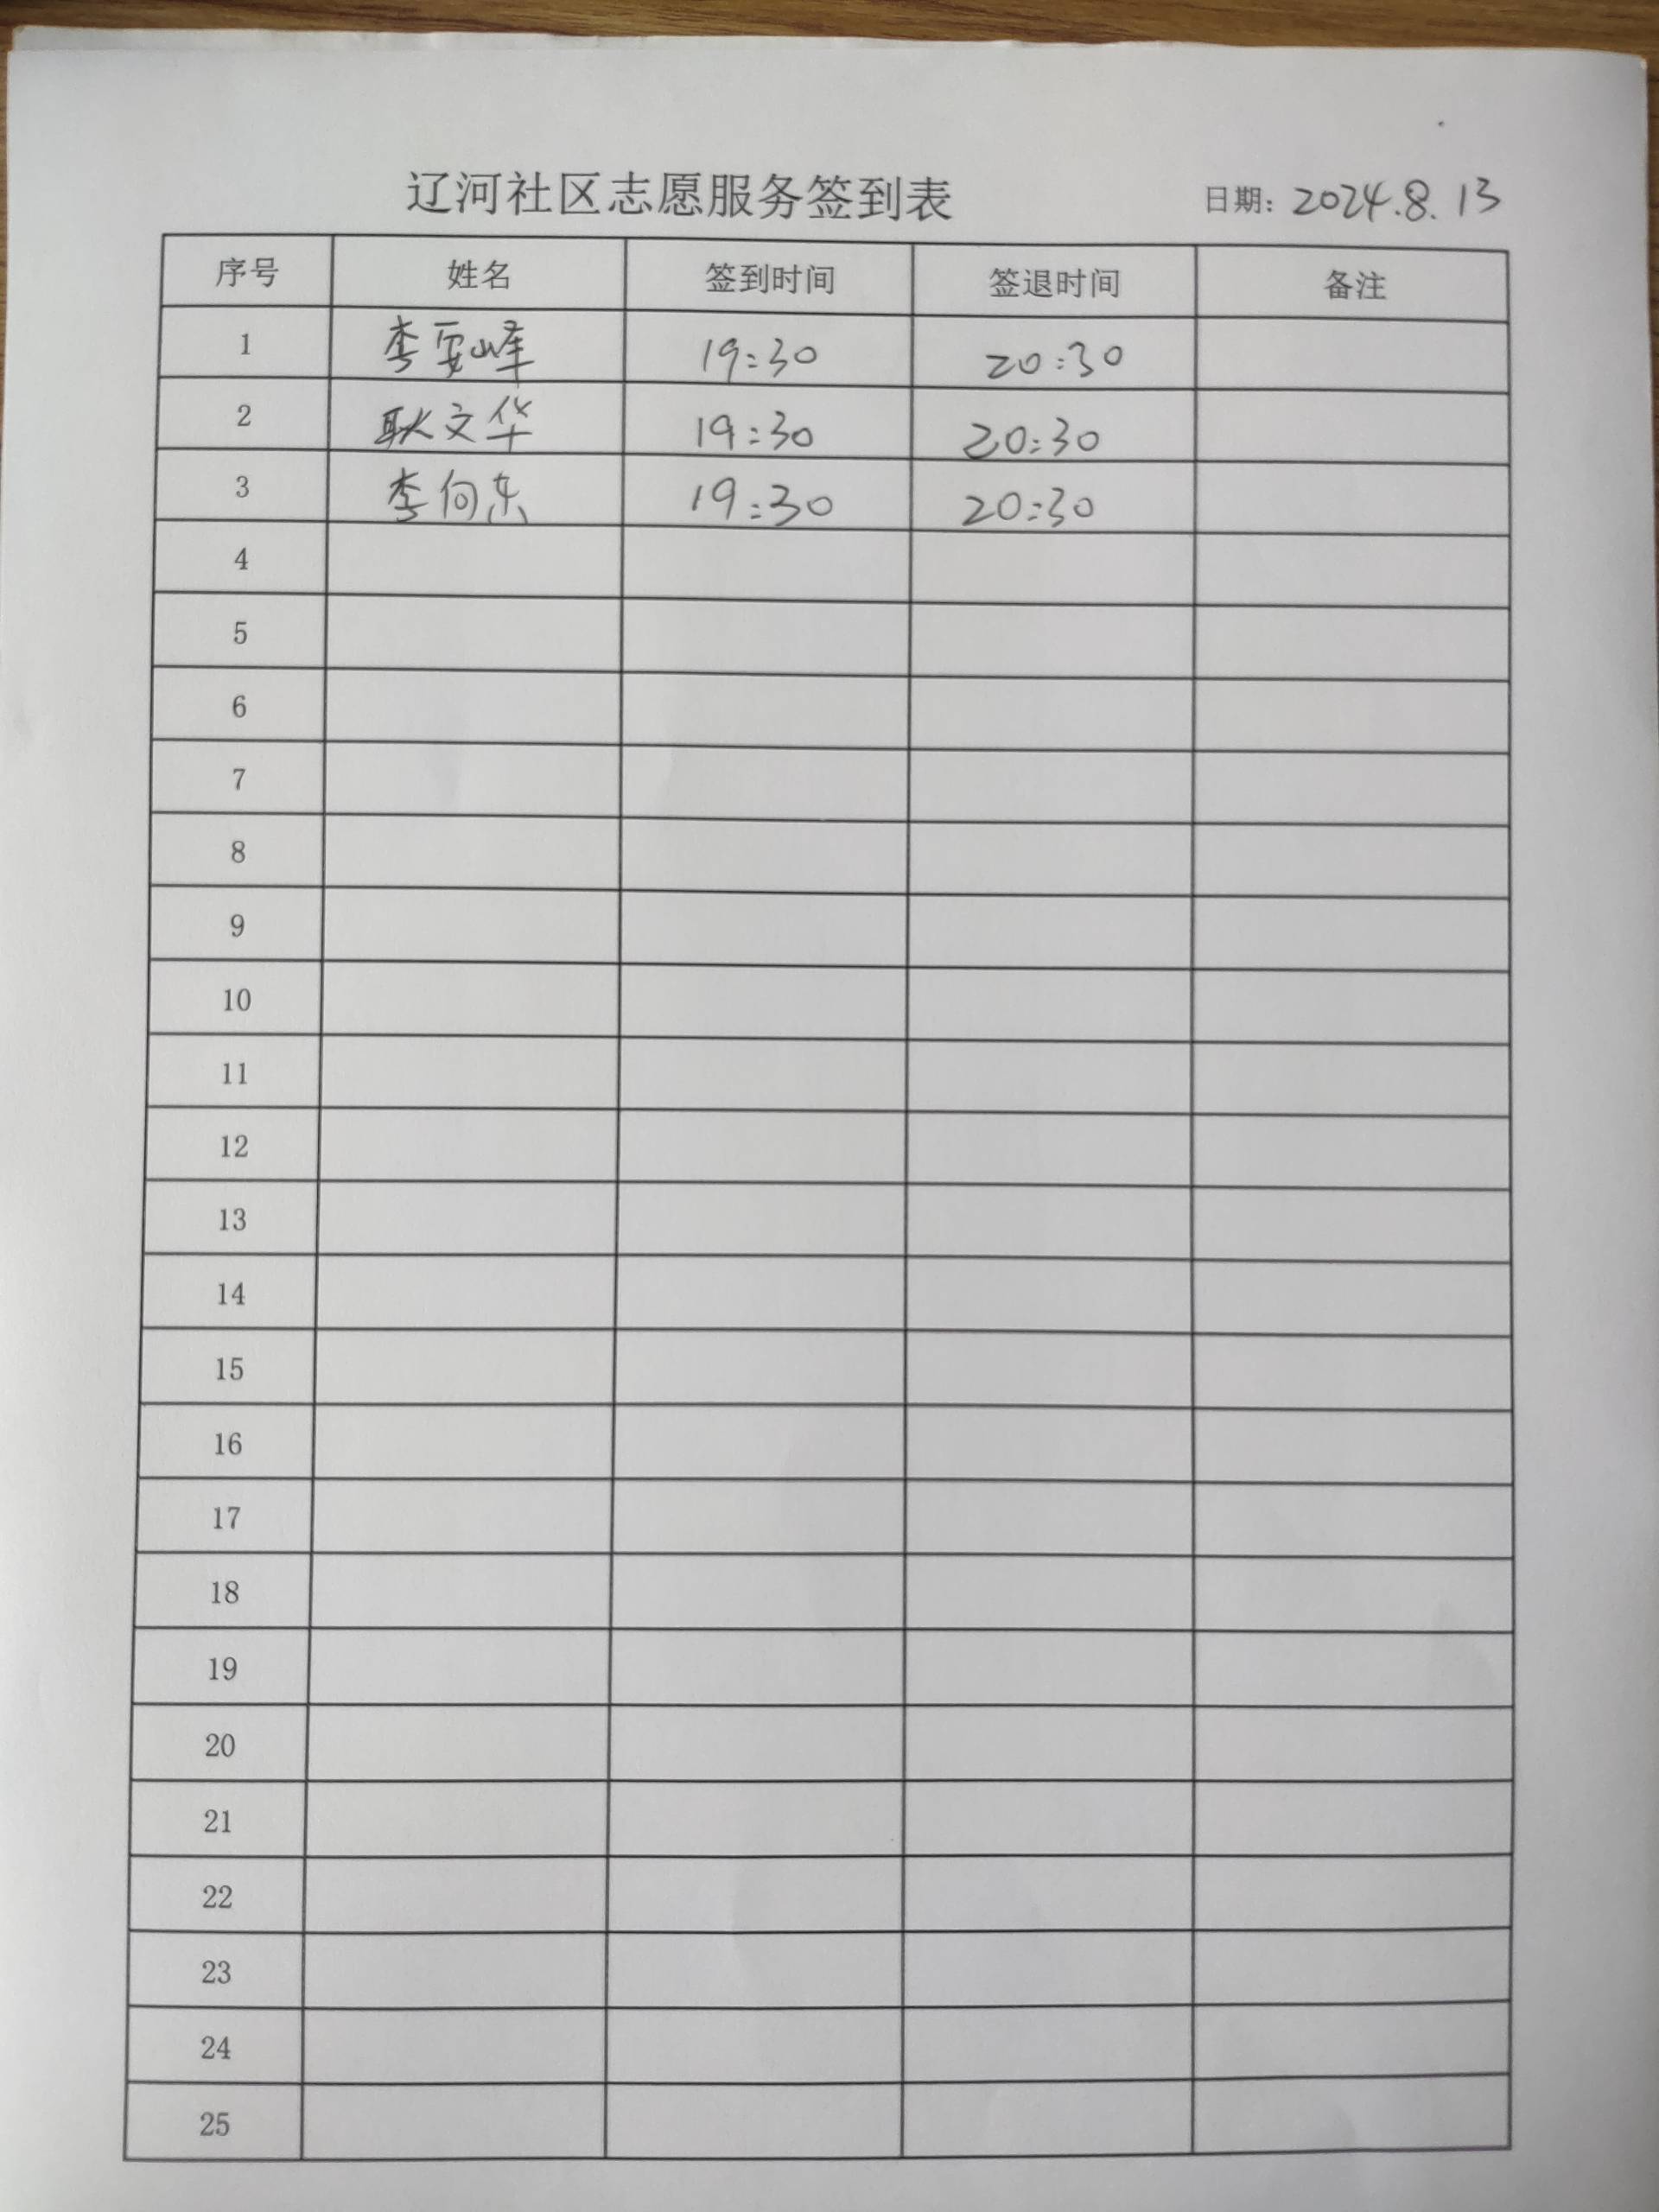 辽河社区志愿服务签到表 日期：2024.8.13
序号 姓名 签到时间 签退时间 备注
1 李安峰 19:30 20:30
2 耿文华 19:30 20:30
3 李向东 19:30 20:30
4
5
6
7
8
9
10
11
12
13
14
15
16
17
18
19
20
21
22
23
24
25